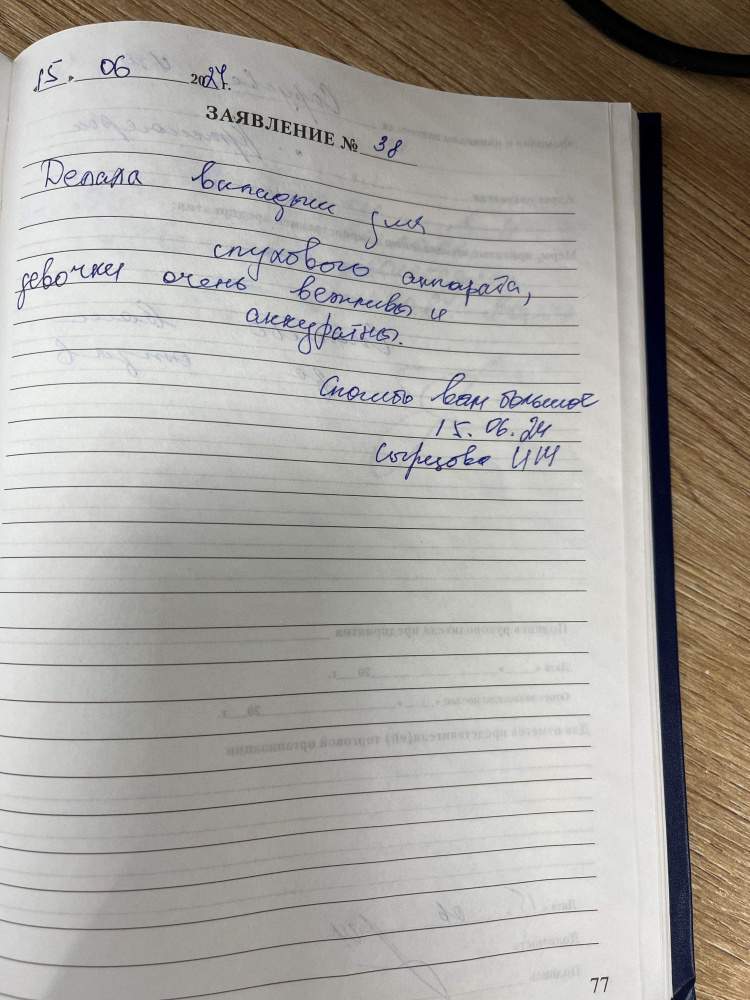 „15" 06 2024г.
ЗАЯВЛЕНИЕ № 38
Делала вкладыш для
слухового аппарата,
девочки очень вежливы и
аккуратны.
Спасибо вам большое
15.06.24
77